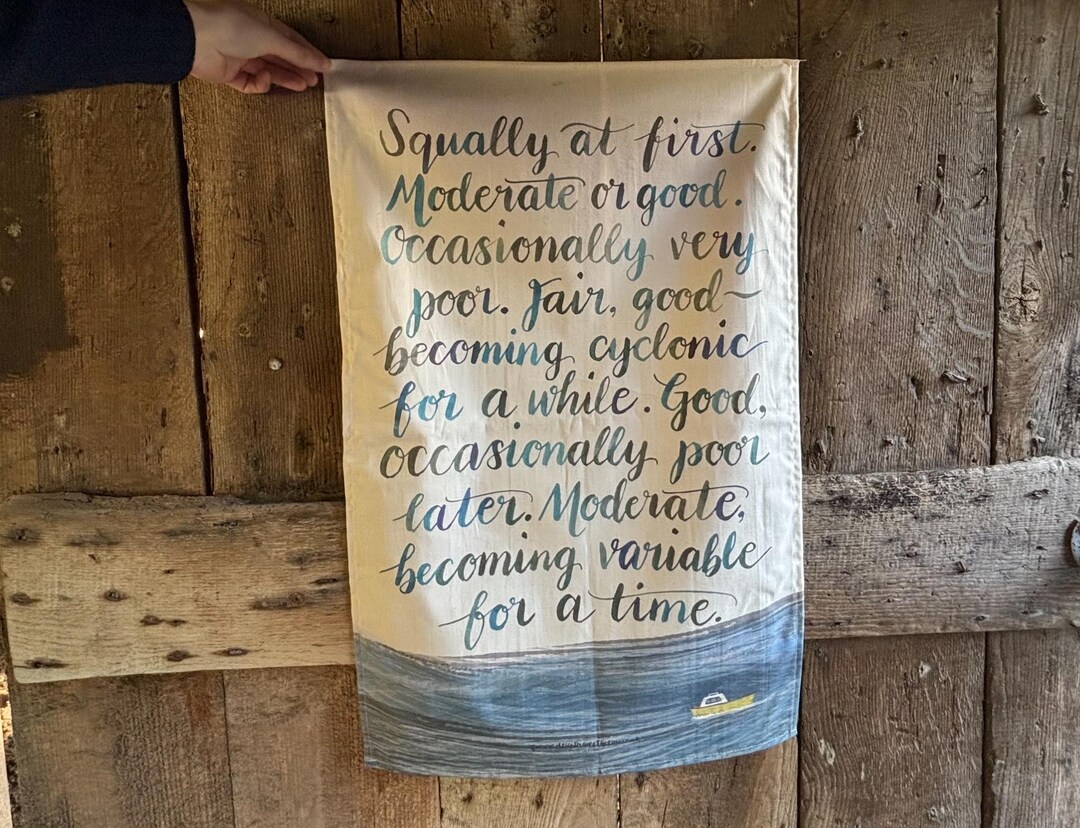 Squally at first.
Moderate or good.
Occasionally very
poor. Fair, good
becoming cyclonic
for a while. Good,
occasionally poor
later. Moderate,
becoming variable
for a time.